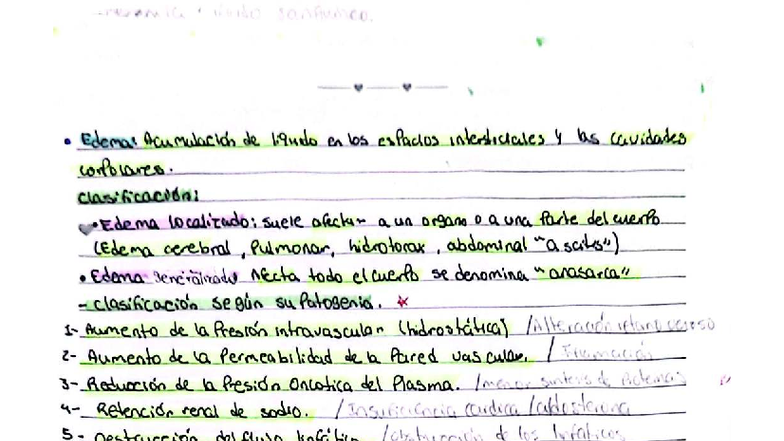 líquido sanguíneo.
• Edema: Acumulación de líquido en los espacios intersticiales y las cavidades
corporales.
Clasificación:
• Edema localizado: suele afectar a un organo o a una parte del cuerpo
(Edema cerebral, Pulmonar, hidrotorax, abdominal "ascitis")
• Edema generalizado Afecta todo el cuerpo se denomina "anasarca"
- clasificación según su Patogenia. *
1- Aumento de la Presión intravascular (hidrostática) /Alteración retorno venoso
2- Aumento de la Permeabilidad de la Pared vascular. / Inflamación
3- Reducción de la Presión Oncotica del Plasma. /menor sintesis de Proteinas
4- Retención renal de sodio. /Insuficiencia cardica /aldosterona
5- Destrucción del flujo linfático /Obstrucción de los linfáticos